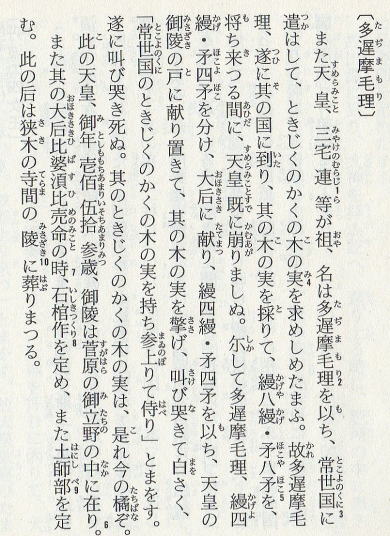 〔多遅摩毛理〕
また天皇、三宅連等が祖、名は多遅摩毛理を以ち、常世国に
遣はして、ときじくのかくの木の実を求めしめたまふ。故多遅摩毛
理、遂に其の国に到り、其の木の実を採りて、縵八縵・矛八矛を、
将ち来つる間に、天皇既に崩りましぬ。尓して多遅摩毛理、縵四
縵・矛四矛を分け、大后に献り、縵四縵・矛四矛を以ち、天皇の
御陵の戸に献り置きて、其の木の実を擎げ、叫び哭きて白さく、
「常世国のときじくのかくの木の実を持ち参上りて侍り」とまをす。
遂に叫び哭き死ぬ。其のときじくのかくの木の実は、是れ今の橘ぞ。
此の天皇、御年壱佰伍拾参歳、御陵は菅原の御立野の中に在り。
また其の大后比婆須比売命の時、石棺作を定め、また土師部を定
む。此の后は狭木の寺間の陵に葬りまつる。